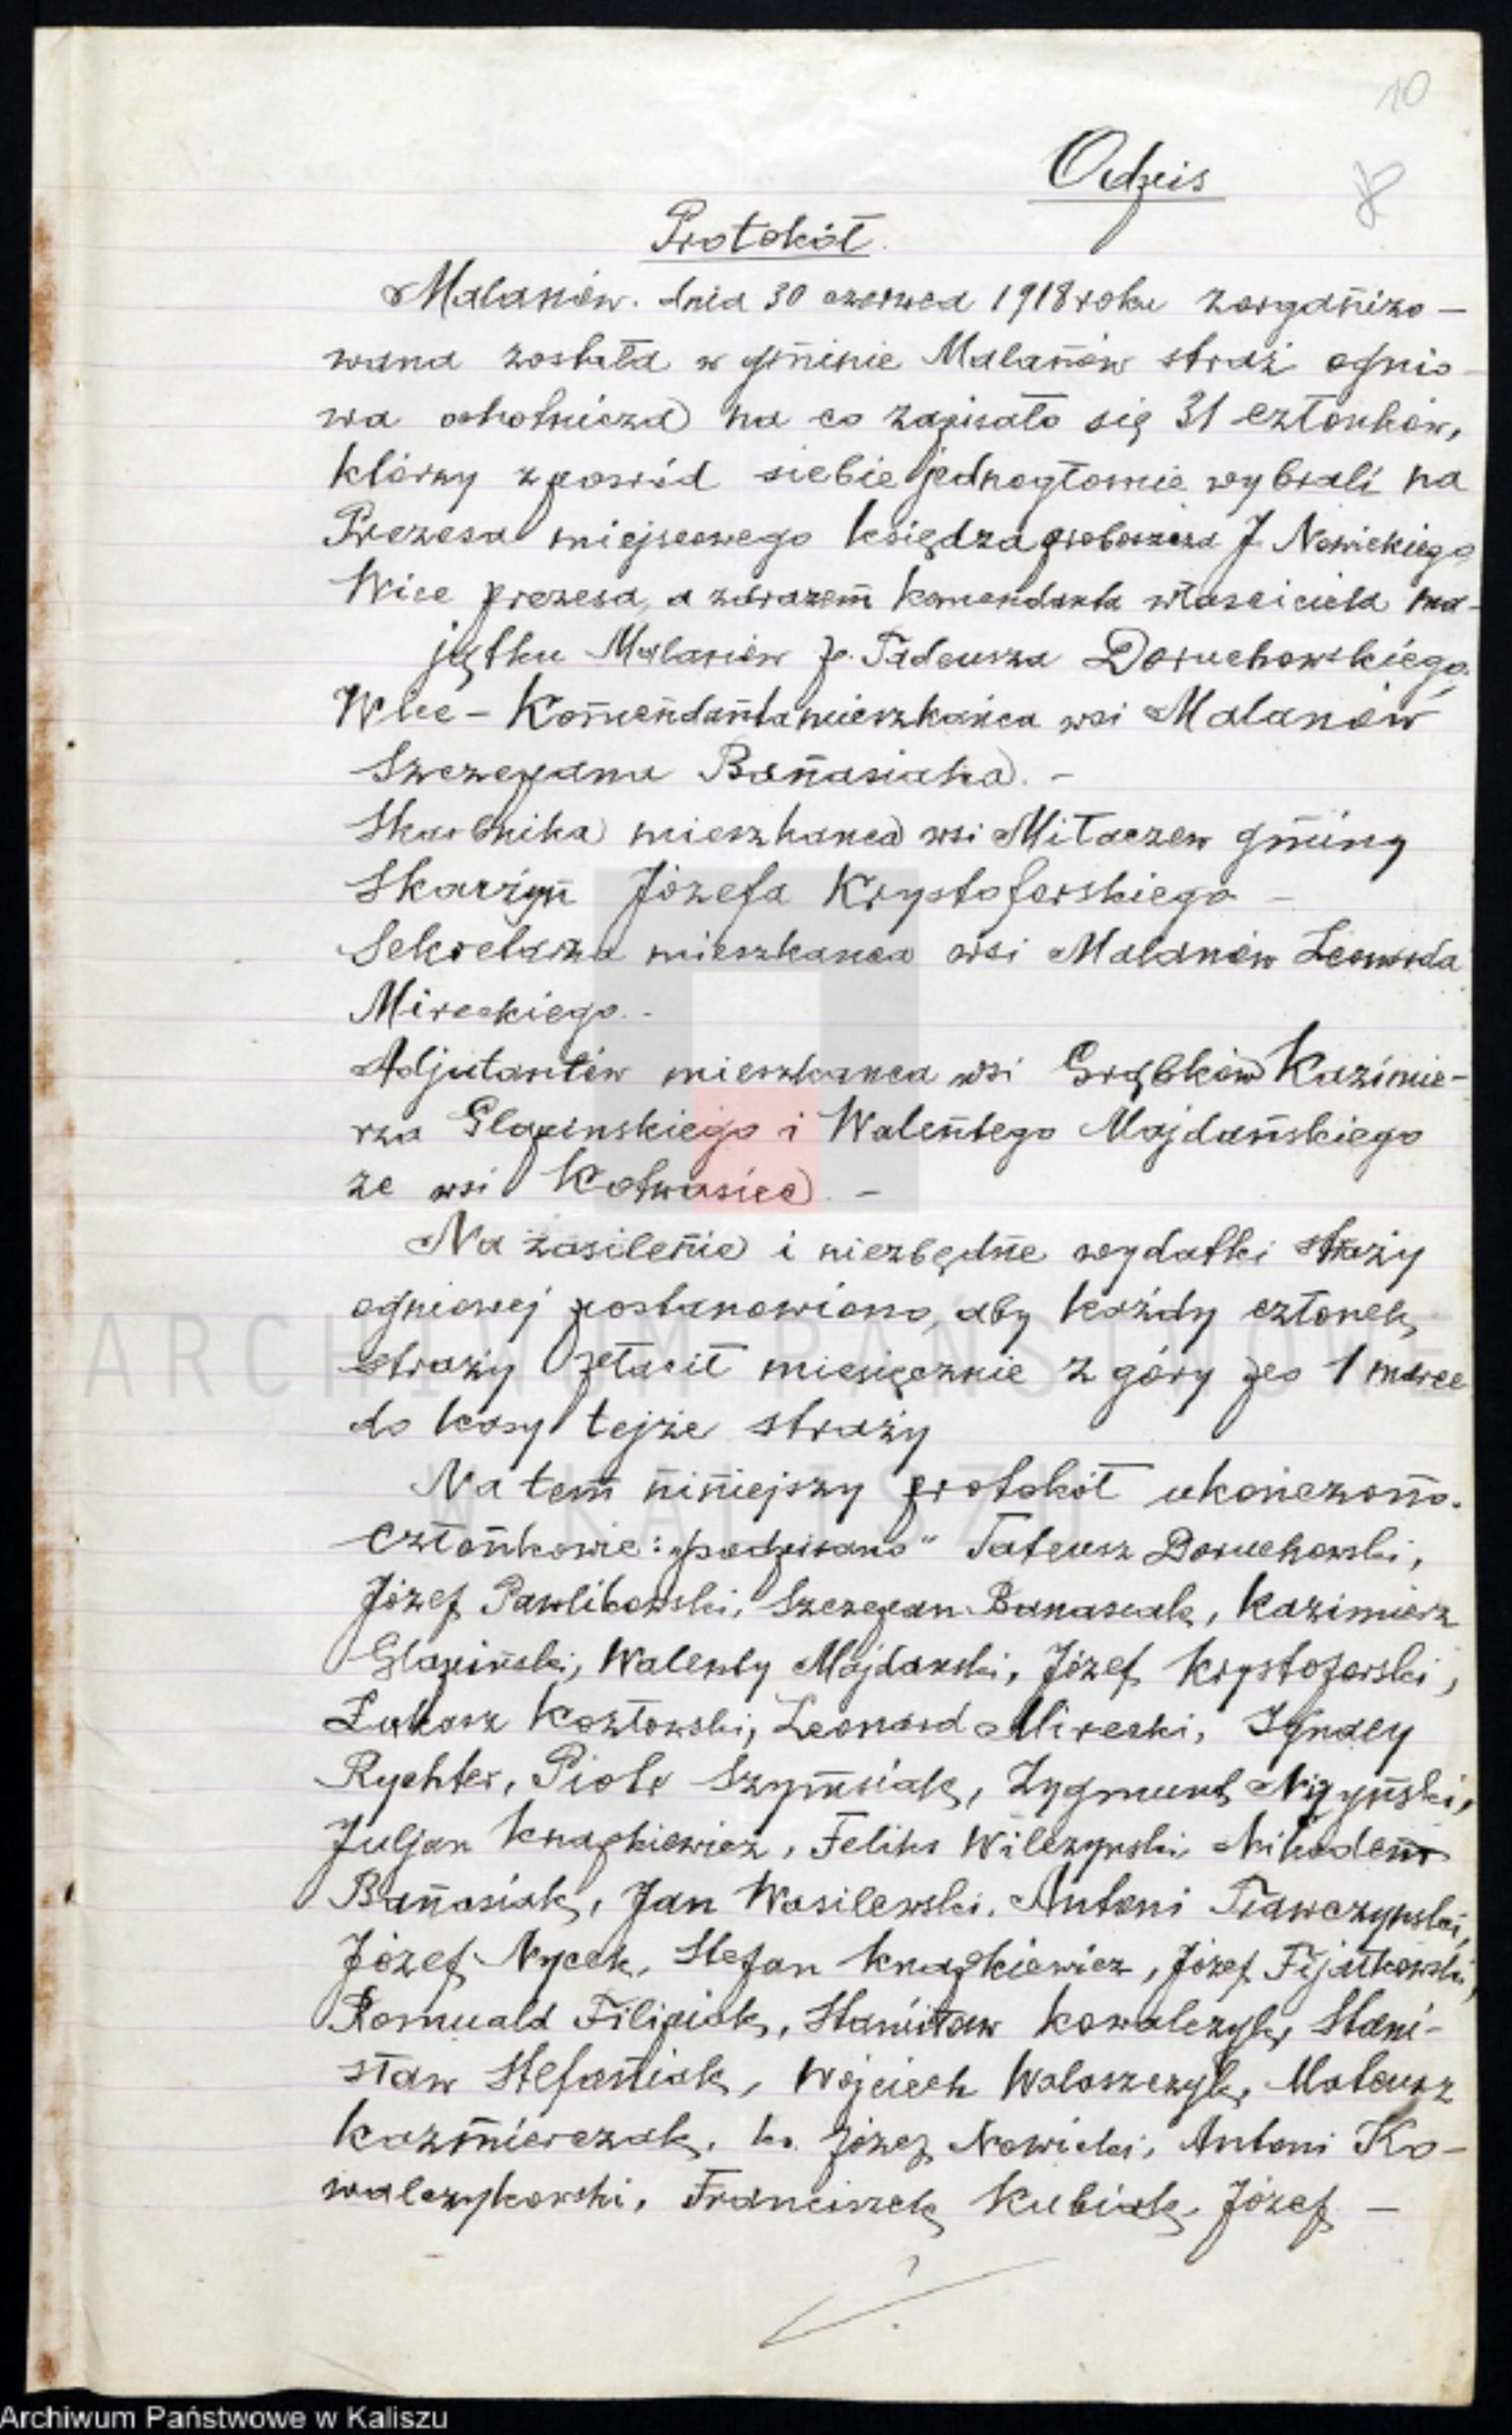 10
Odpis
8
Protokół.
Malanów. dnia 30 czerwca 1918 roku zorganizo-
wana została w gminie Malanów straż ognio-
wa ochotnicza na co zapisało się 31 członków,
którzy z pośród siebie jednogłośnie wybrali na
Prezesa miejscowego księdza proboszcza J. Nowickiego
Wice prezesa, a zarazem komendanta właściciela ma-
jątku Malanów p. Tadeusza Doruchowskiego.
Wice-Komendanta mieszkańca wsi Malanów
Szczepana Banasiaka. -
Skarbnika mieszkańca wsi Miłaczew gminy
Skarżyn Józefa Krystoforskiego -
Sekretarza mieszkanca wsi Malanów Leonarda
Mireckiego. -
Adjutantów mieszkanca wsi Grąbków Kazimie-
rza Glapinskiego i Walentego Majdańskiego
ze wsi Kotwasice. -
Na zasilenie i niezbędne wydatki straży
ogniowej postanowiono, aby każdy członek
straży płacił miesięcznie z góry po 1 marce
do kasy tejże straży
Na tem niniejszy protokół ukończono.
członkowie: „podpisano" Tateusz Doruchowski,
Józef Pawlikowski, Szczepan Banasiak, Kazimierz
Glapiński, Walenty Majdanski, Józef Krystoforski,
Łukasz Kozłowski, Leonard Mirecki, Ignacy
Rychter, Piotr Szymsiak, Zygmunt Niżyński,
Juljan Knapkiewicz, Feliks Wilczynski Nikodem
Banasiak, Jan Wasilewski, Antoni Trawczynski,
Józef Nycek, Stefan Knapkiewicz, Józef Fijałkowski,
Romuald Filipiak, Stanisław Kowalczyk, Stani-
sław Stefaniak, Wojciech Waloszczyk, Mateusz
Kazmierczak, ks. Józef Nowicki, Antoni Ko-
walczykowski, Franciszek Kubiak, Józef -
ARCHIWUM PAŃSTWOWE
W KALISZU
Archiwum Państwowe w Kaliszu